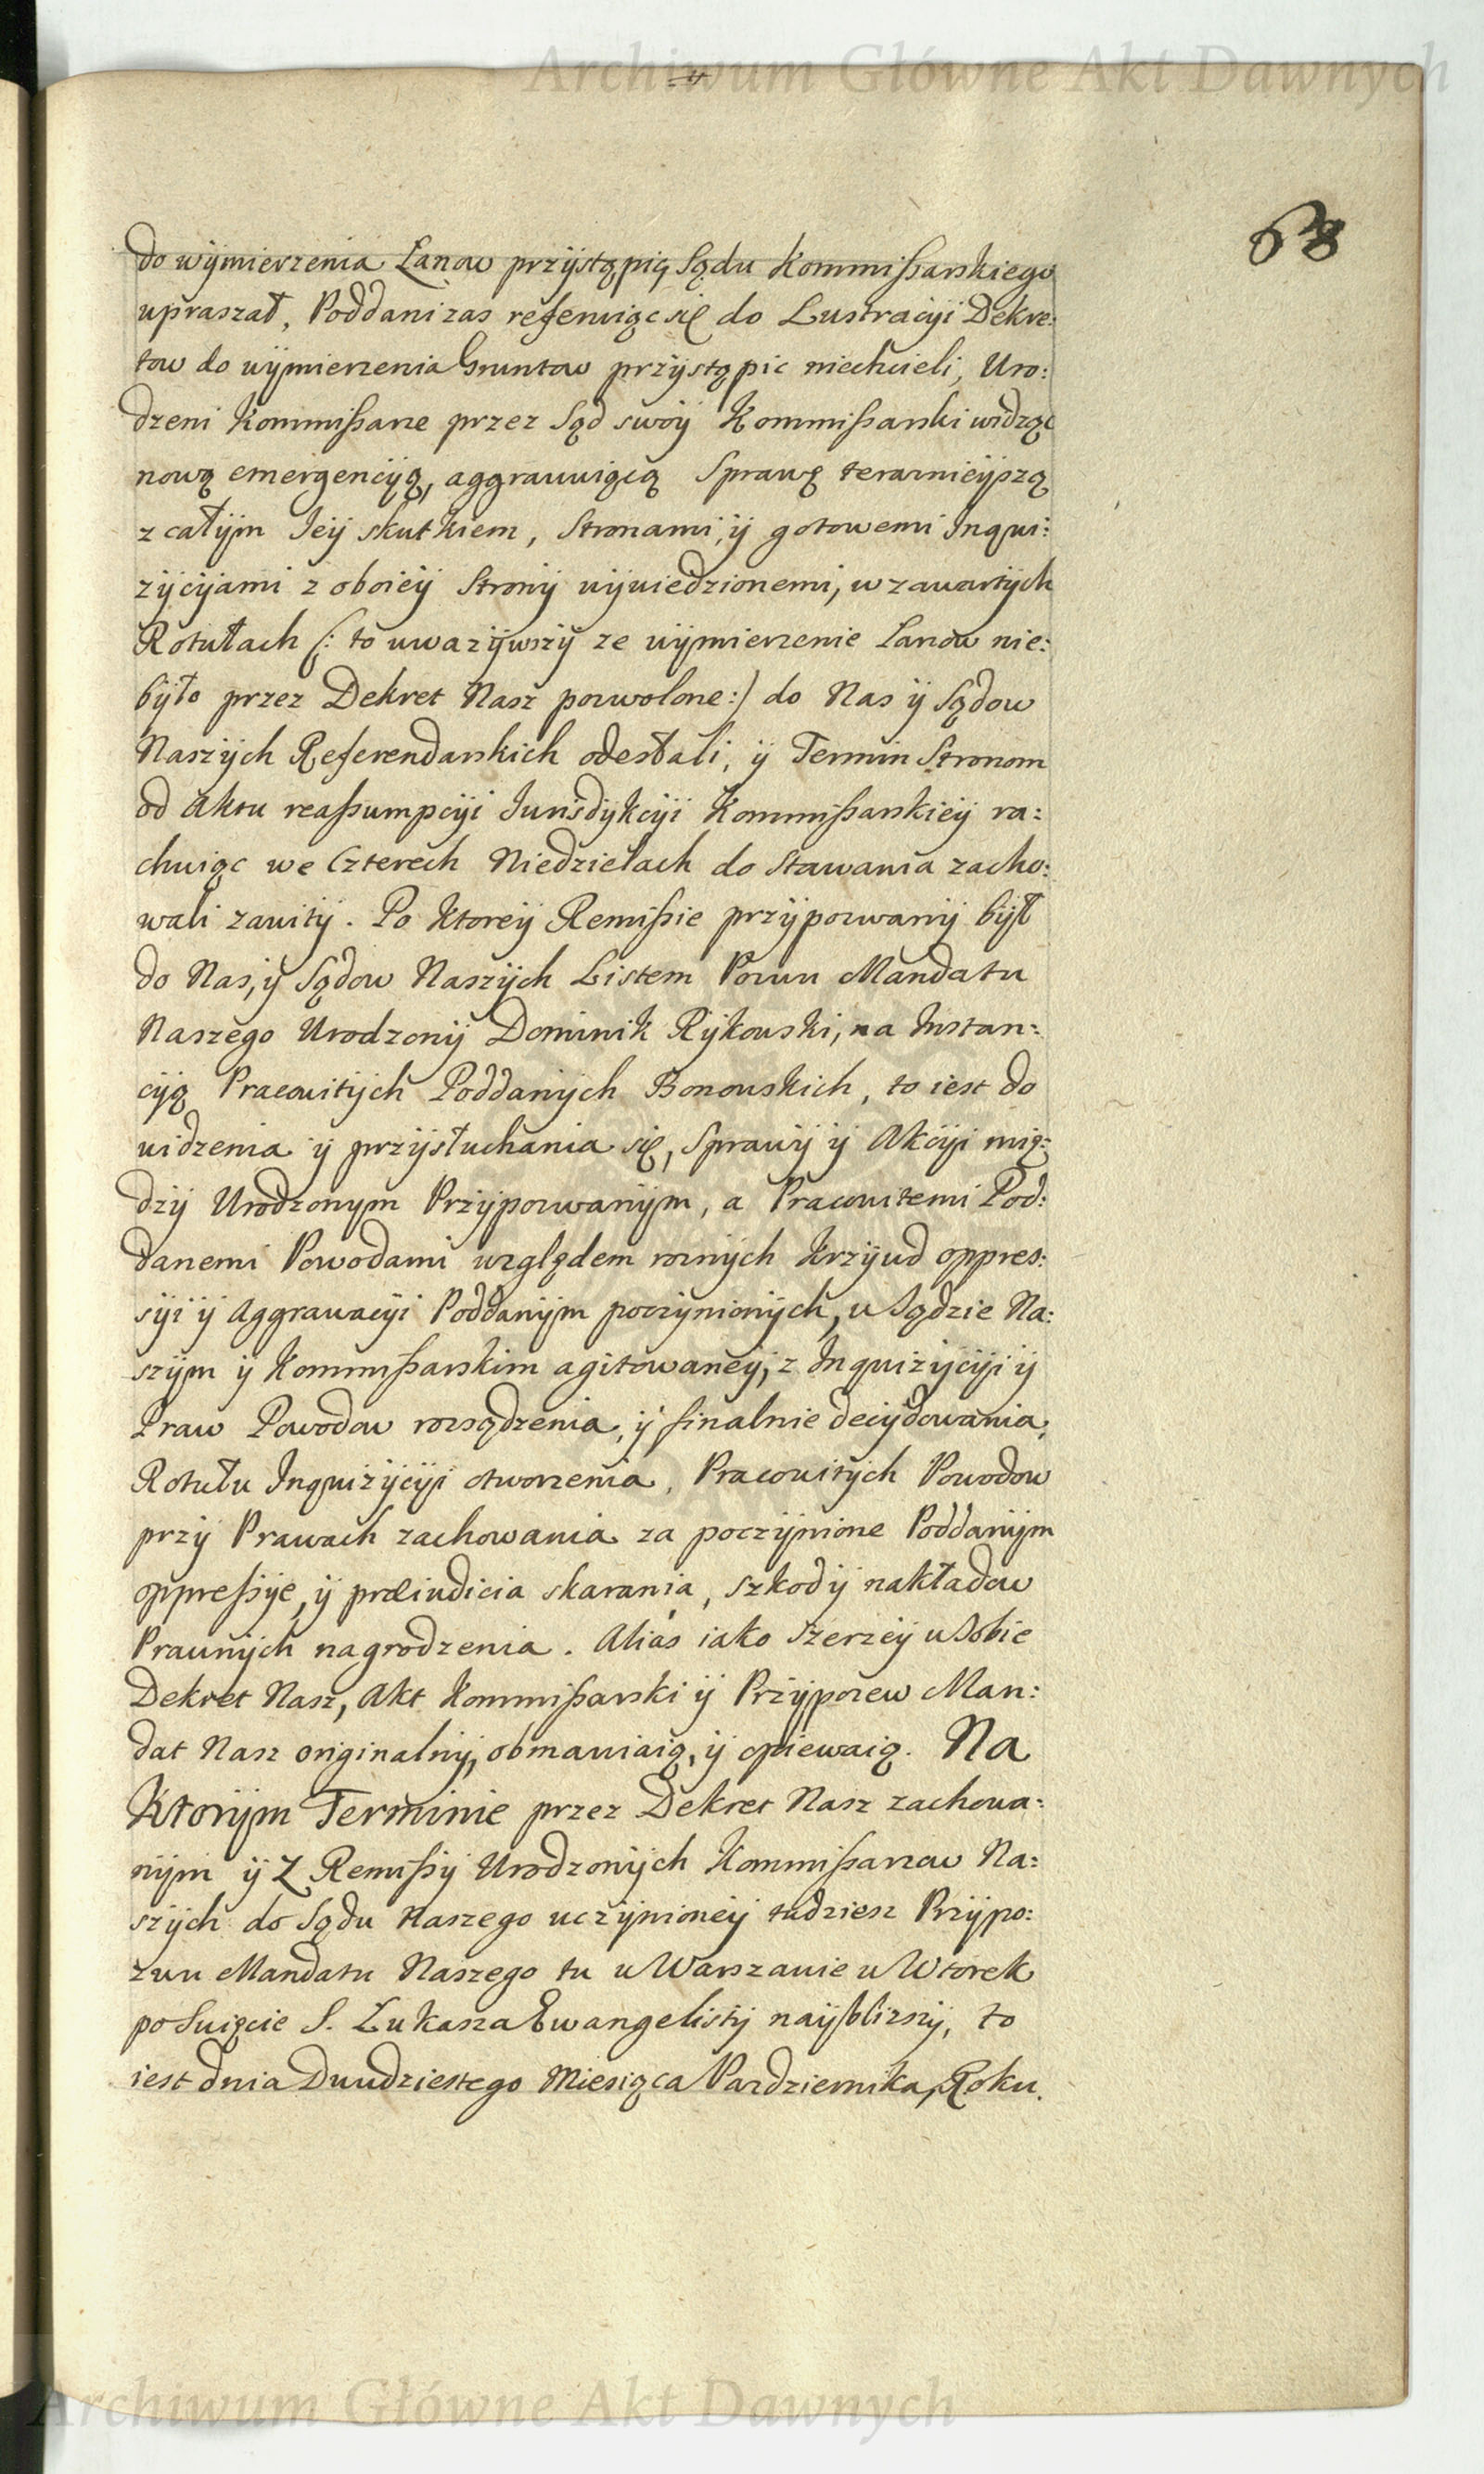 Archiwum Główne Akt Dawnych
68
do wÿmierzenia Lanow przÿstąpią Sądu Kommißarskiego
upraszał, Poddani zas referuiąc się do Lustracÿi Dekre:
tow do wÿmierzenia Gruntow przÿstąpic niechcieli, Uro:
dzeni Kommißarze przez Sąd swoÿ Kommißarski widząc
nową emergencÿą, aggrawuiącą Sprawę teraznieÿszą
z całÿm Jeÿ skutkiem, Stronami, ÿ gotowemi Inqui:
zÿcÿjami z oboieÿ Stronÿ wÿwiedzionemi, w zawartÿch
Rotułach (: to uwazÿwszÿ ze wÿmierzenie Lanow nie:
bÿło przez Dekret Nasz pozwolone :) do Nas ÿ Sądow
Naszÿch Referendarskich odesłali, ÿ Termin Stronom
od Aktu reaßumpcÿi Jurisdÿkcÿi Kommißarskieÿ ra:
chuiąc we Czterech Niedzielach do Stawania zacho:
wali zawitÿ. Po Ktoreÿ Remißie przÿpozwanÿ bÿł
do Nas, ÿ Sądow Naszÿch Listem Pozwu Mandatu
Naszego Urodzonÿ Dominik Rÿkowski, na Instan:
cÿą Pracowitÿch Poddanÿch Bonowskich, to iest do
widzenia ÿ przÿsłuchania się, Sprawÿ ÿ Akcÿi mię:
dzÿ Urodzonym Przÿpozwanÿm, a Pracowitemi Pod:
danemi Powodami względem roznÿch Krzÿwd oppres:
sÿi ÿ Aggrawacÿi Poddanÿm poczynionÿch, w Sądzie Na:
szÿm ÿ Kommißarskim agitowaneÿ, z Inquizÿcÿi ÿ
Praw Powodow rozsądzenia, ÿ finalnie decÿdowania,
Rotułu Inquizÿcÿi otworzenia, Pracowitÿch Powodow
przÿ Prawach zachowania za poczÿnione Poddanÿm
oppreßÿe, ÿ præiudicia skarania, szkod ÿ nakładow
Prawnÿch nagrodzenia. Aliàs iako szerzeÿ w Sobie
Dekret Nasz, Akt Kommißarski ÿ Przÿpozew Man:
dat Nasz originalnÿ, obmawiaią, ÿ opiewaią. Na
Ktorÿm Terminie przez Dekret Nasz zachowa:
nÿm ÿ Z Remißÿ Urodzonÿch Kommißarzow Na:
szÿch do Sądu Naszego uczÿnioneÿ tudziesz Przÿpo:
zwu Mandatu Naszego tu w Warszawie w Wtorek
po Swięcie S. Łukasza Ewangelistÿ naÿblizszÿ, to
iest dnia Dwudziestego Miesiąca Pazdziernika, Roku.
Archiwum Główne Akt Dawnych